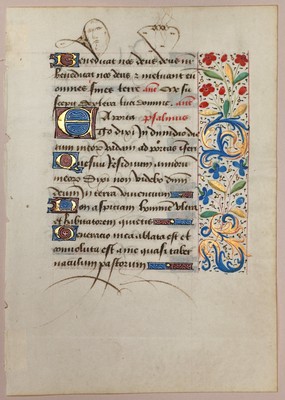 Benedicat nos deus deus nr
benedicat nos deus z metuant eu
omnes fines terre ane Me sus
cepit dextera tua domine. ane
Ezechie psalmus
Ego dixi in dimidio di
um meorum vadam ad portas iferi
Quesivi residuum annorum
meorum Dixi non videbo dnm
deum in terra viventium
Non aspiciam hominem ultra
et habitatorem quietis
Generacio mea ablata est et
convoluta est a me quasi taber
naculum pastorum